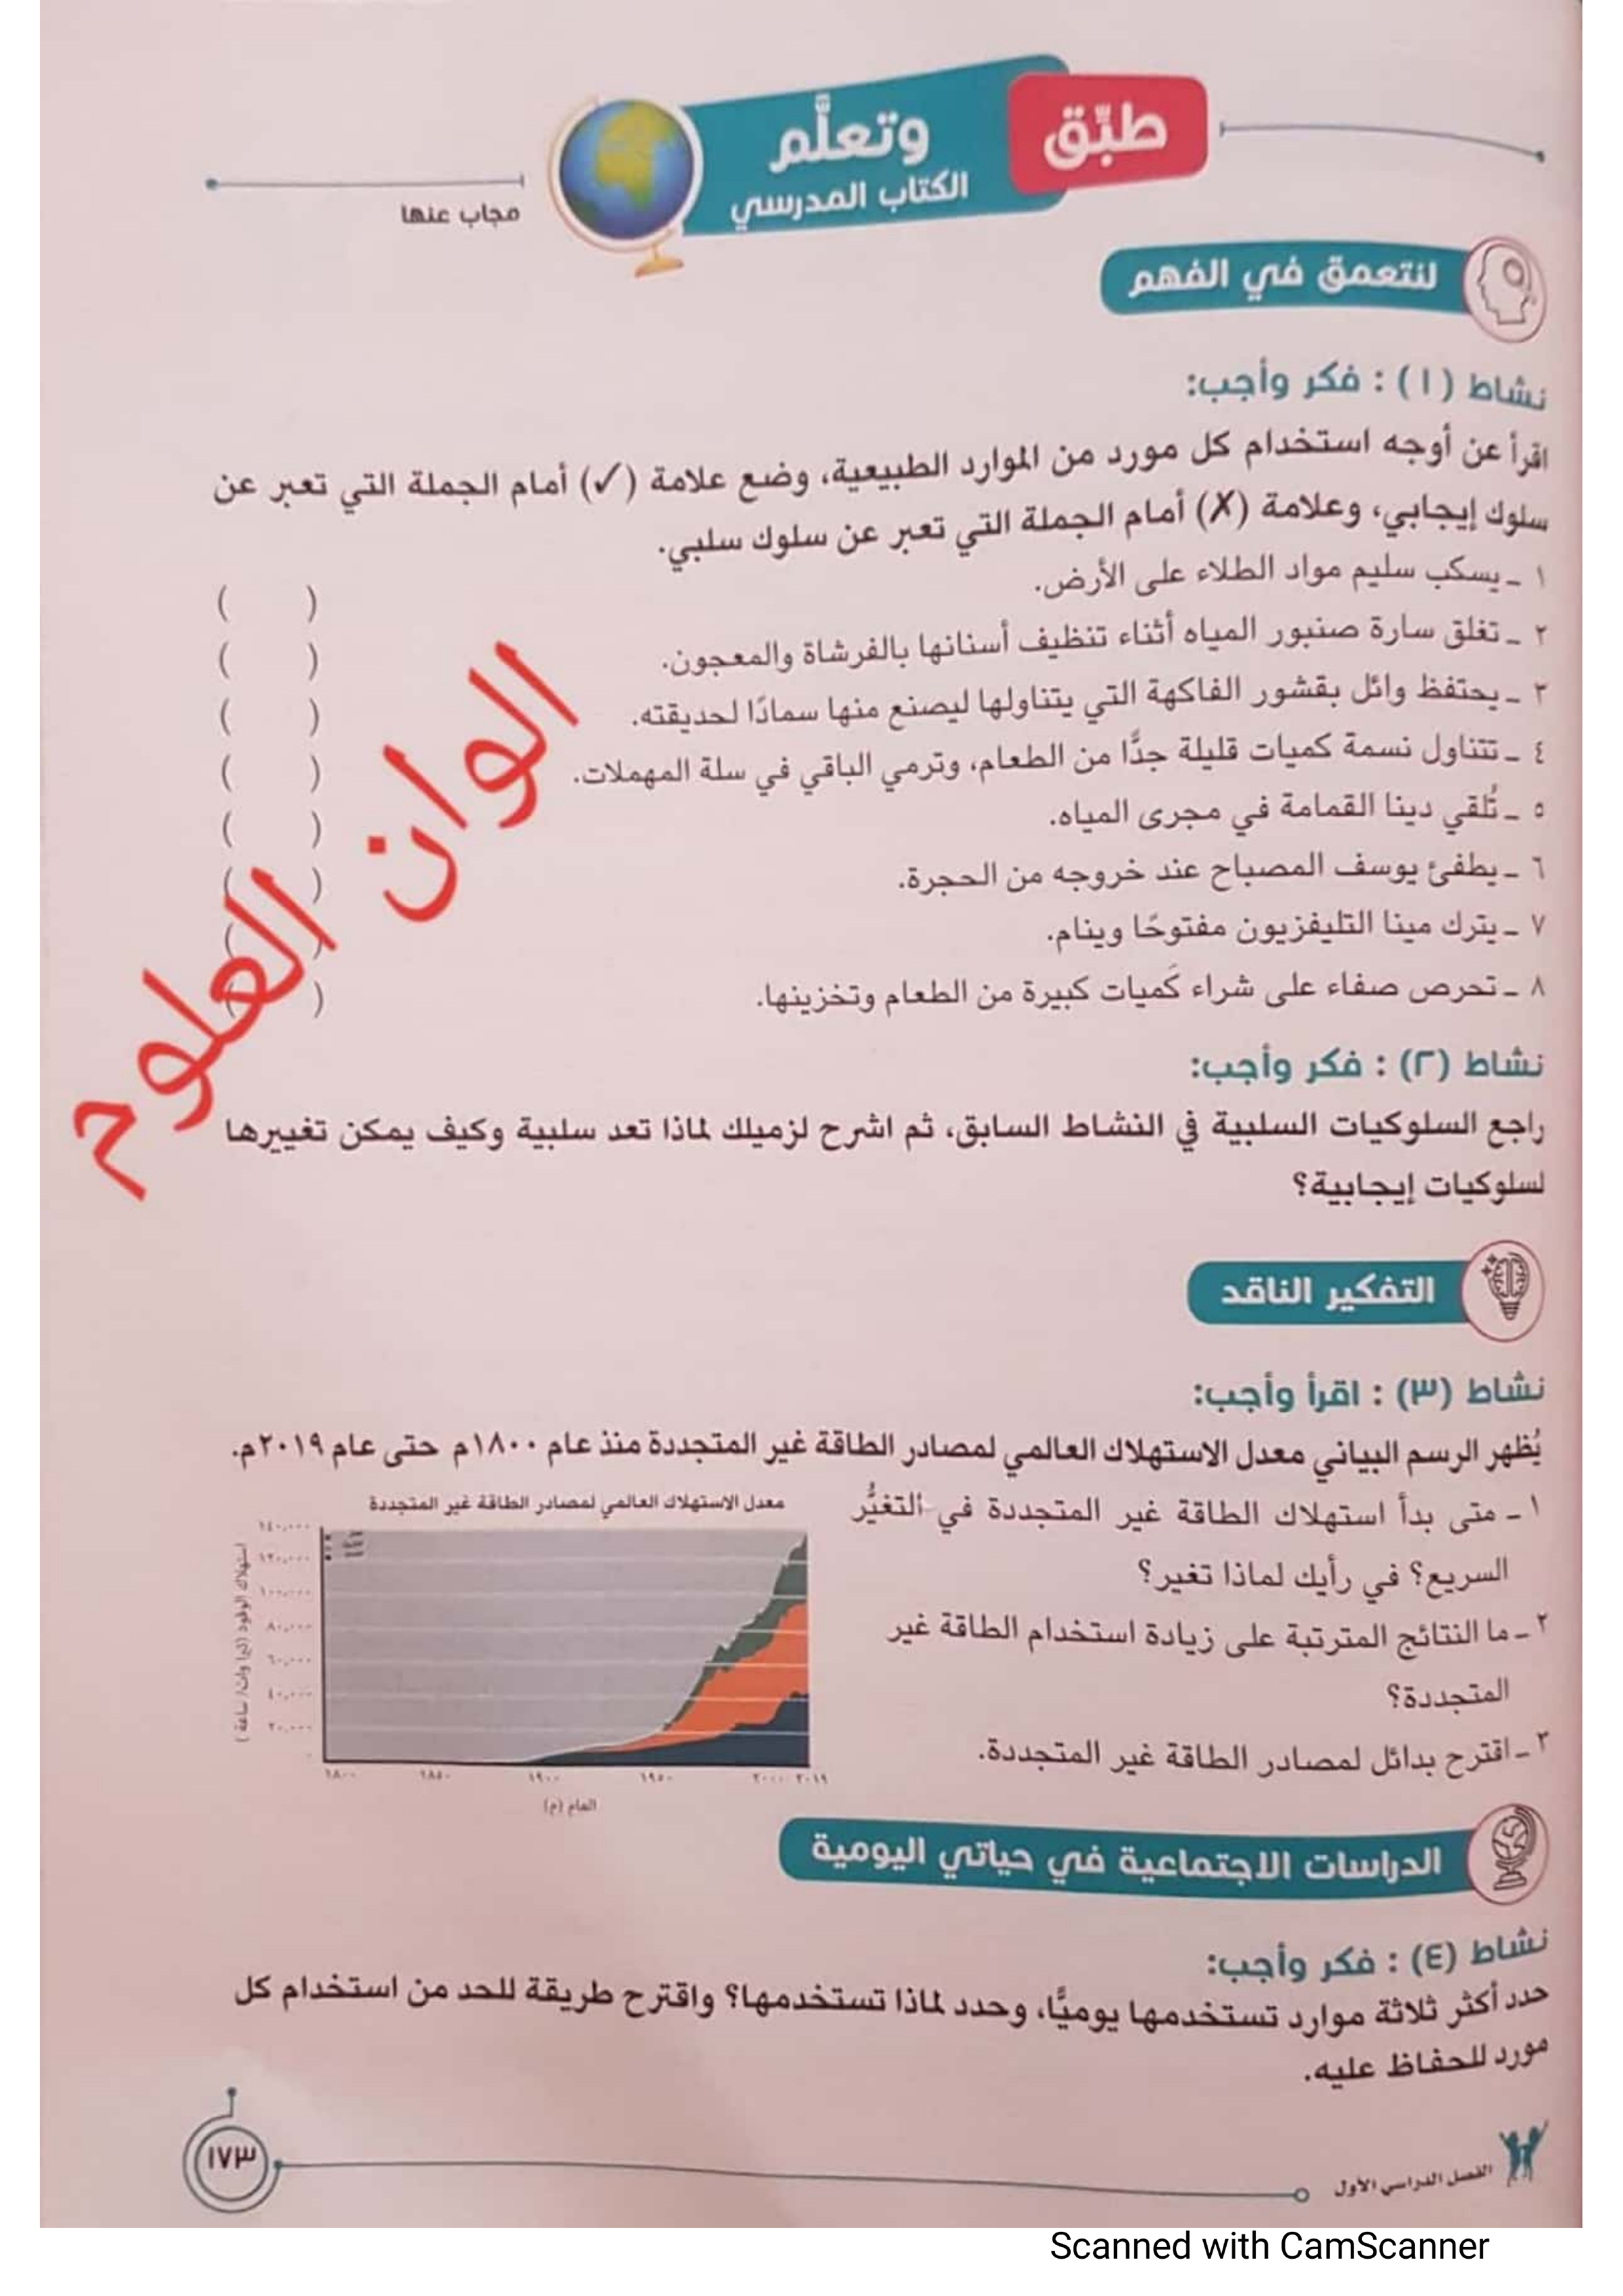 طبِّق
وتعلَّم
الكتاب المدرسي
مجاب عنها
لنتعمق في الفهم
نشاط (١) : فكر وأجب:
اقرأ عن أوجه استخدام كل مورد من الموارد الطبيعية، وضع علامة (✓) أمام الجملة التي تعبر عن
سلوك إيجابي، وعلامة (✗) أمام الجملة التي تعبر عن سلوك سلبي.
١ ـ يسكب سليم مواد الطلاء على الأرض. ( )
٢ ـ تغلق سارة صنبور المياه أثناء تنظيف أسنانها بالفرشاة والمعجون. ( )
٣ ـ يحتفظ وائل بقشور الفاكهة التي يتناولها ليصنع منها سمادًا لحديقته. ( )
٤ ـ تتناول نسمة كميات قليلة جدًّا من الطعام، وترمي الباقي في سلة المهملات. ( )
٥ ـ تُلقي دينا القمامة في مجرى المياه. ( )
٦ ـ يطفئ يوسف المصباح عند خروجه من الحجرة. ( )
٧ ـ يترك مينا التليفزيون مفتوحًا وينام. ( )
٨ ـ تحرص صفاء على شراء كَميات كبيرة من الطعام وتخزينها. ( )
الوان العلوم
نشاط (٢) : فكر وأجب:
راجع السلوكيات السلبية في النشاط السابق، ثم اشرح لزميلك لماذا تعد سلبية وكيف يمكن تغييرها
لسلوكيات إيجابية؟
التفكير الناقد
نشاط (٣) : اقرأ وأجب:
يُظهر الرسم البياني معدل الاستهلاك العالمي لمصادر الطاقة غير المتجددة منذ عام ١٨٠٠م حتى عام ٢٠١٩م.
١ ـ متى بدأ استهلاك الطاقة غير المتجددة في التغيُّر
السريع؟ في رأيك لماذا تغير؟
٢ ـ ما النتائج المترتبة على زيادة استخدام الطاقة غير
المتجددة؟
٣ ـ اقترح بدائل لمصادر الطاقة غير المتجددة.
معدل الاستهلاك العالمي لمصادر الطاقة غير المتجددة
استهلاك الوقود (تيرا وات/ ساعة)
١٤٠,٠٠٠
١٢٠,٠٠٠
١٠٠,٠٠٠
٨٠,٠٠٠
٦٠,٠٠٠
٤٠,٠٠٠
٢٠,٠٠٠
٠
١٨٠٠ ١٨٥٠ ١٩٠٠ ١٩٥٠ ٢٠٠٠ ٢٠١٩
العام (م)
الدراسات الاجتماعية في حياتي اليومية
نشاط (٤) : فكر وأجب:
حدد أكثر ثلاثة موارد تستخدمها يوميًّا، وحدد لماذا تستخدمها؟ واقترح طريقة للحد من استخدام كل
مورد للحفاظ عليه.
الفصل الدراسي الأول
١٧٣
Scanned with CamScanner